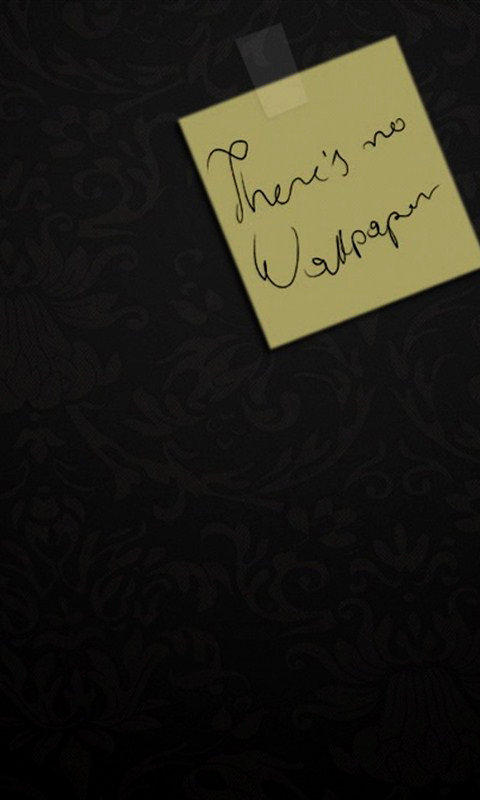 There's no
Wallpaper